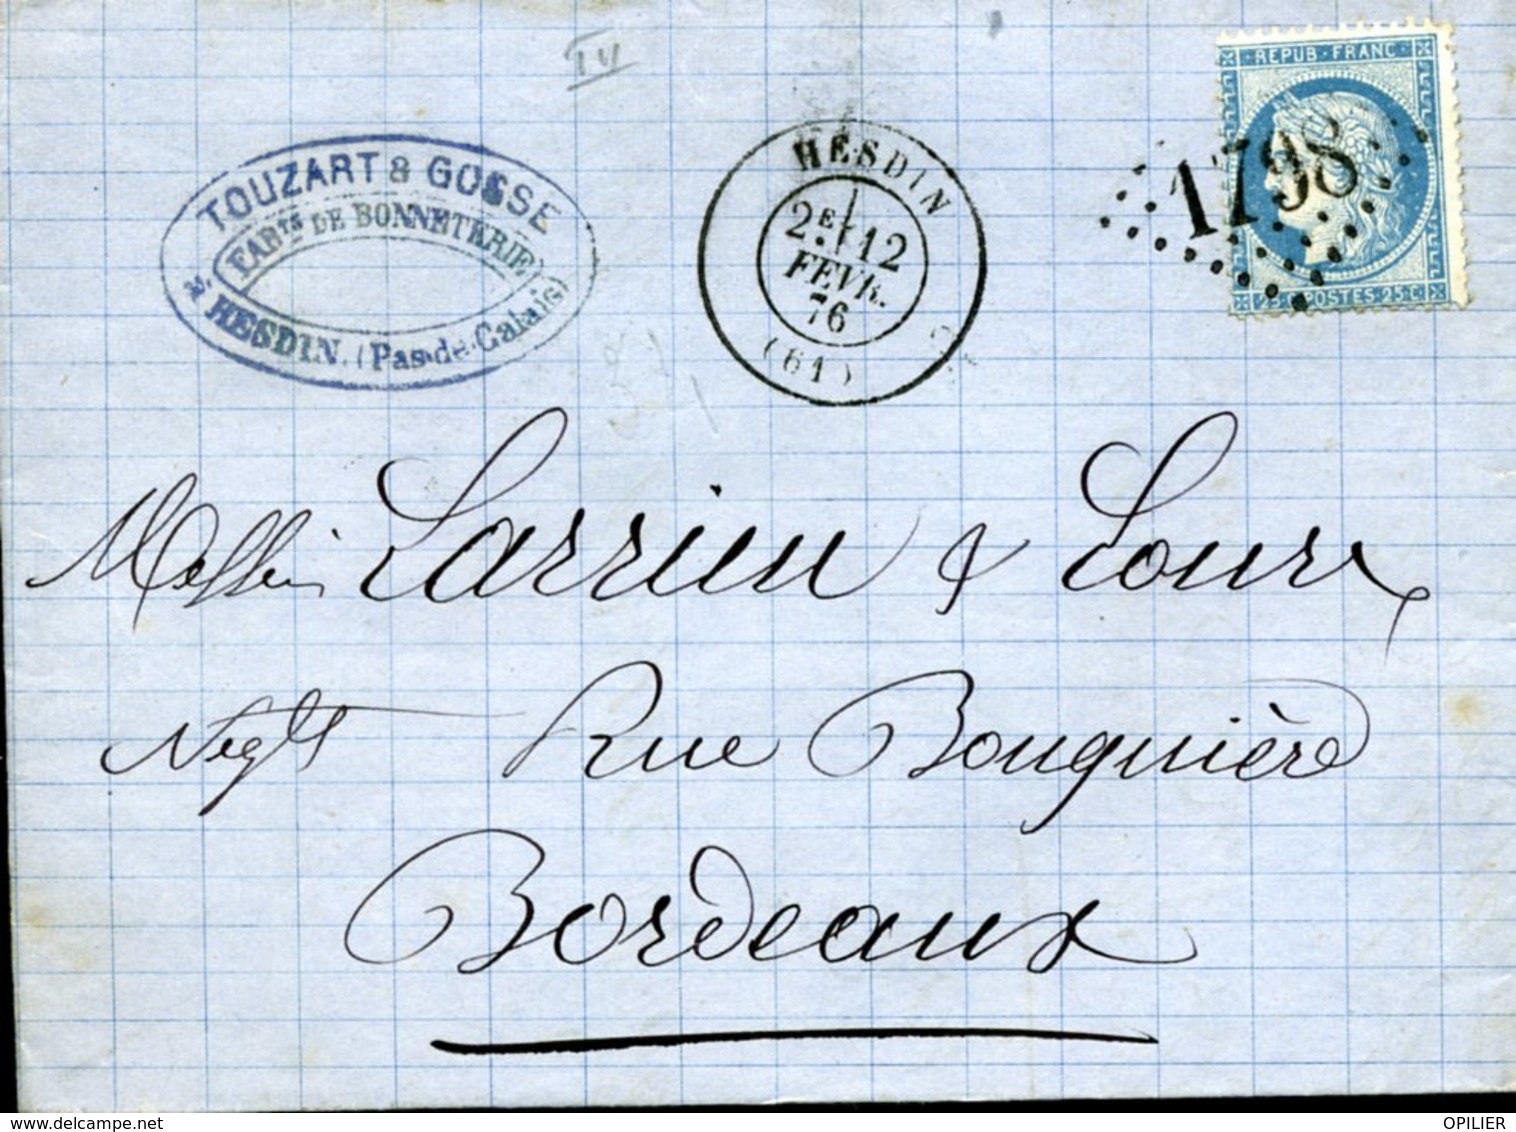 IV
TOUZART & GOSSE
FABTS DE BONNETERIE
à HESDIN. (Pas-de-Calais)
HESDIN
2E 12
FEVR.
76
(61)
REPUB·FRANC
1798
25 C POSTES·25·C
Messieurs Larrieu & Loure
Negts Rue Bouquière
Bordeaux
OPILIER